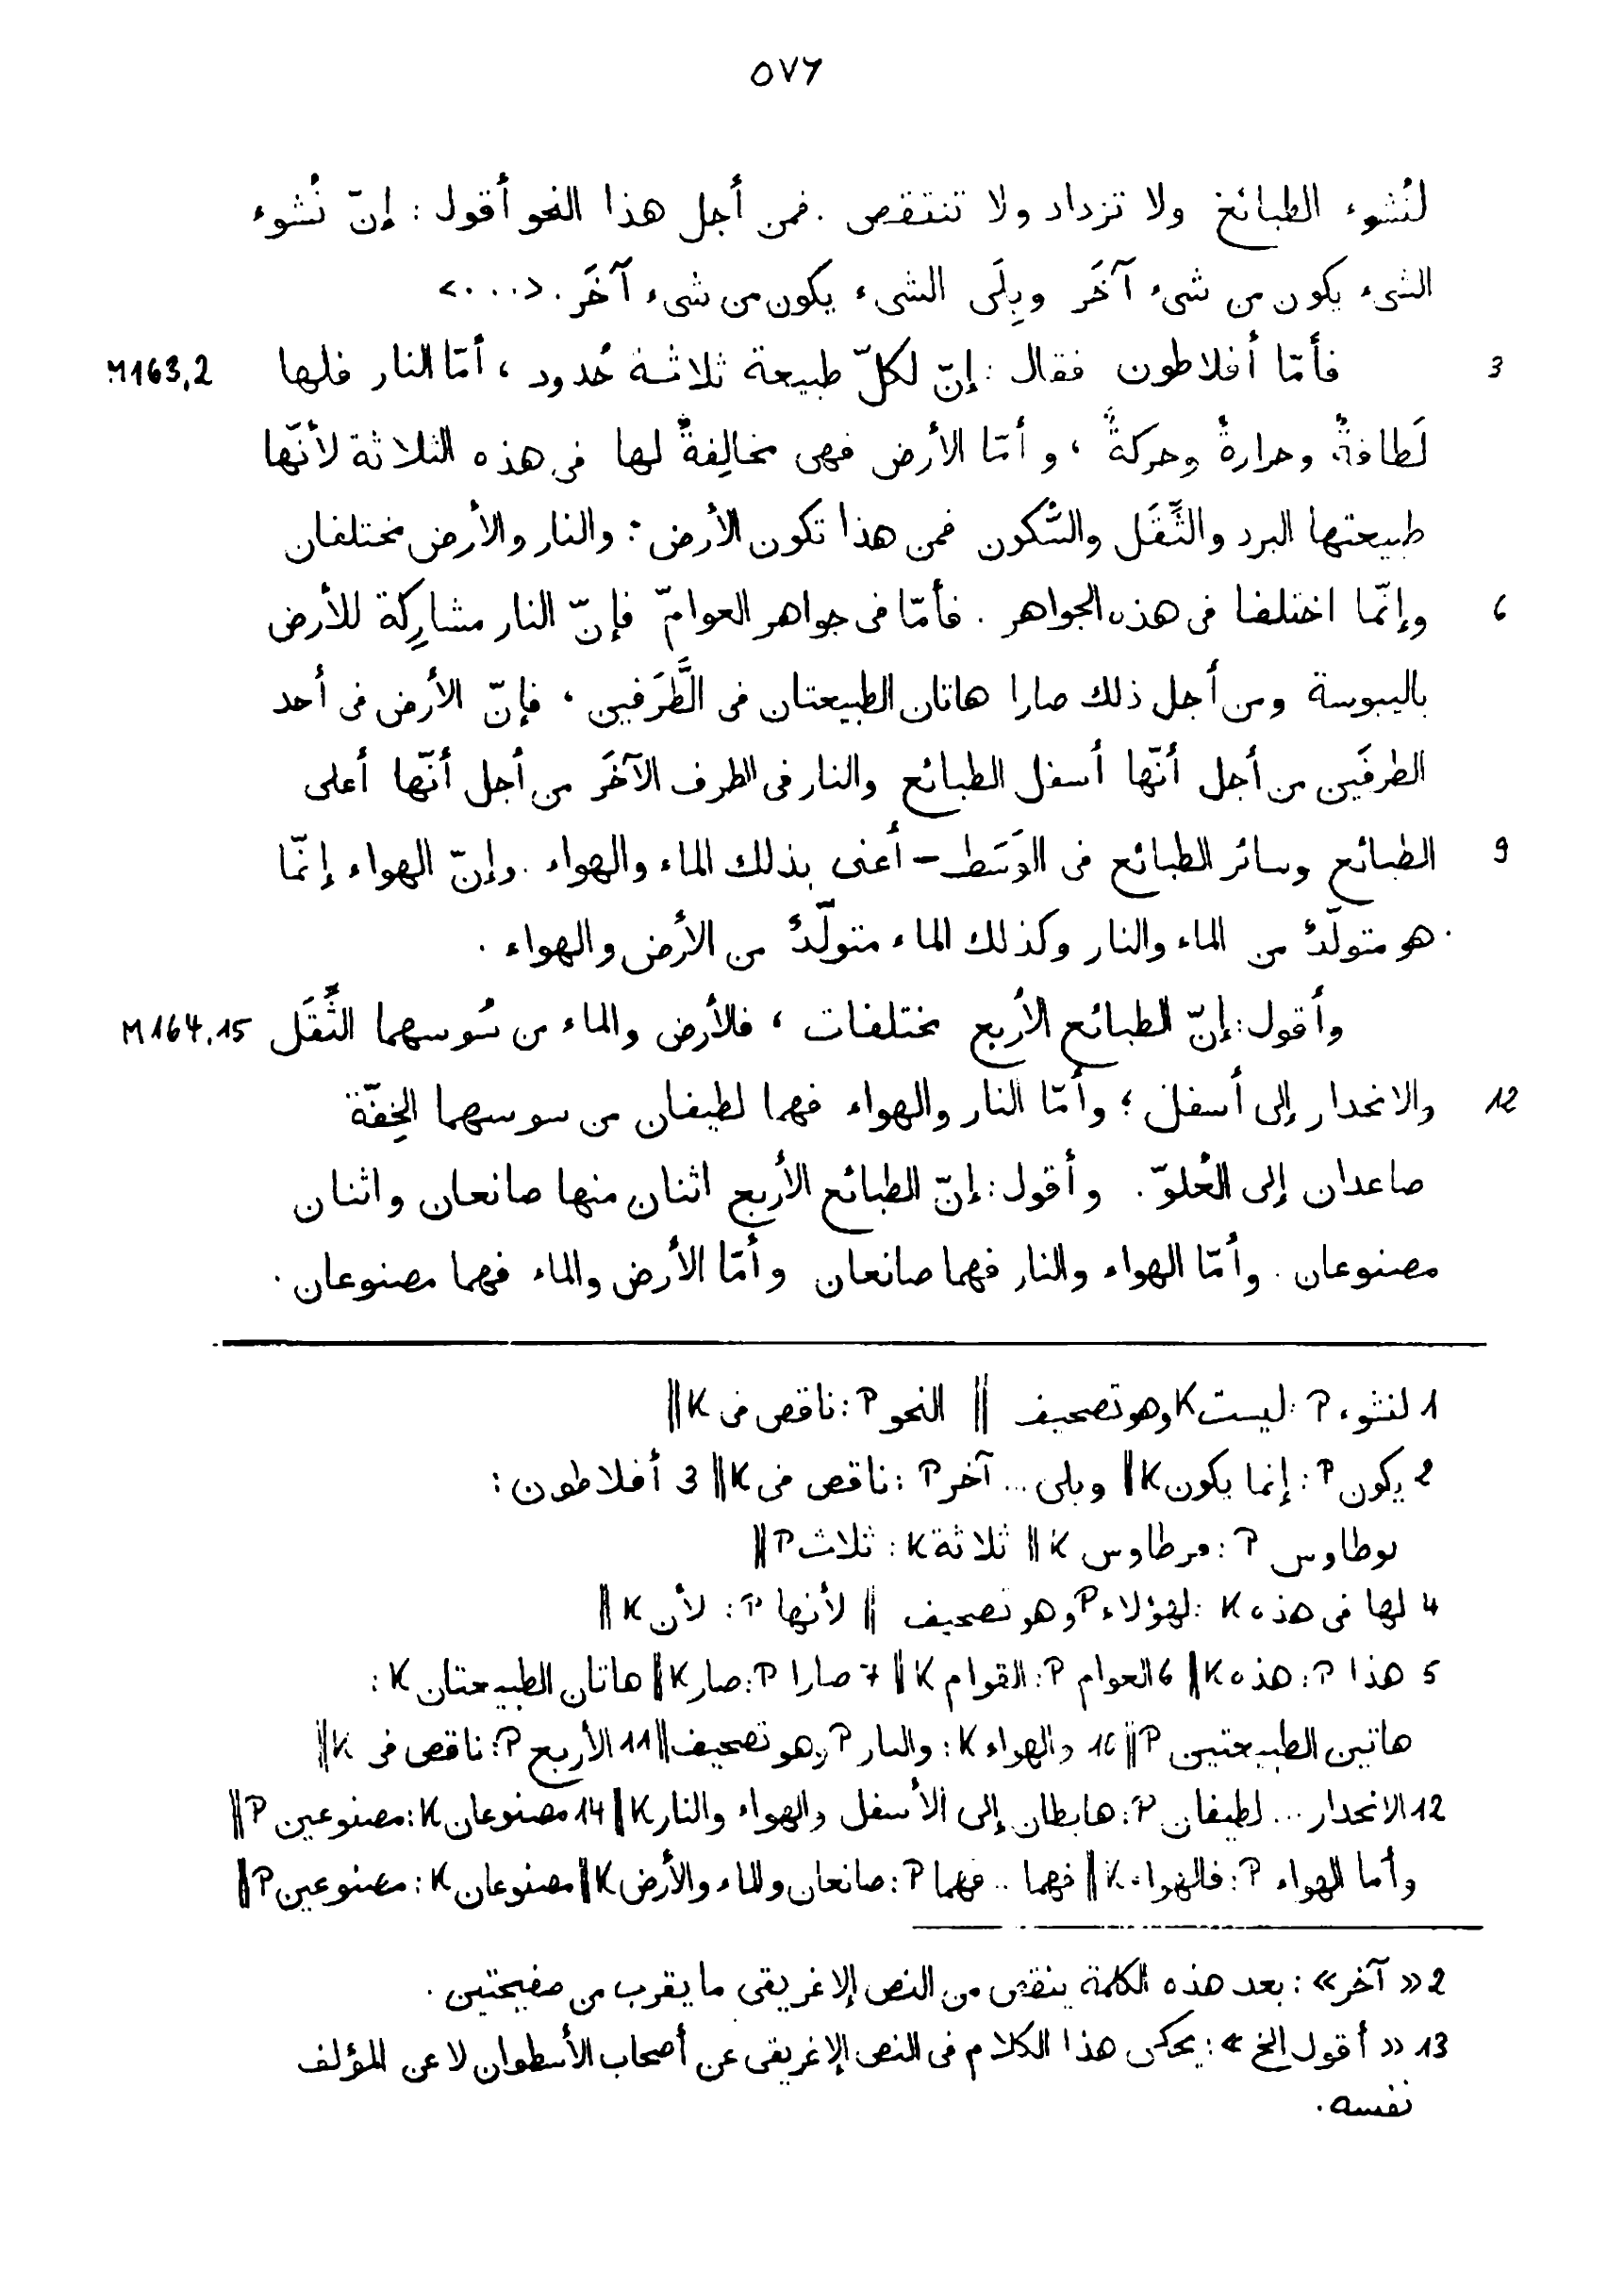 ٥٧٦
لنُشوء الطبائع ولا تزداد ولا تنتقص . فمن أجل هذا النحو أقول : إنّ نُشوء
الشىء يكون من شىء آخَر وبِلَى الشىء يكون من شىء آخَر . <...>
3 فأمّا أفلاطون فقال : إنّ لكلّ طبيعة ثلاثة حُدود ، أمّا النار فلها M163,2
لَطافةٌ وحرارةٌ وحركةٌ ، وأمّا الأرض فهى مخالِفةٌ لها فى هذه الثلاثة لأنّها
طبيعتها البرد والثِّقَل والسُّكون فمن هذا تكون الأرض : والنار والأرض مختلفان
6 وإنّما اختلفا فى هذه الجواهر . فأمّا فى جواهر العوامّ فإنّ النار مشارِكة للأرض
باليبوسة ومن أجل ذلك صارا هاتان الطبيعتان فى الطَّرَفين ، فإنّ الأرض فى أحد
الطرفَين من أجل أنّها أسفل الطبائع والنار فى الطرف الآخَر من أجل أنّها أعلى
9 الطبائع وسائر الطبائع فى الوَسَط – أعنى بذلك الماء والهواء . وإنّ الهواء إنّما
هو متولّدٌ من الماء والنار وكذلك الماء متولّدٌ من الأرض والهواء .
وأقول : إنّ الطبائع الأربع مختلفات ، فالأرض والماء من سُوسهما الثِّقَل M164,15
12 والانحدار إلى أسفل ؛ وأمّا النار والهواء فهما لطيفان من سوسهما الخِفّة
صاعدان إلى العُلوّ . وأقول : إنّ الطبائع الأربع اثنان منها صانعان واثنان
مصنوعان . وأمّا الهواء والنار فهما صانعان وأمّا الأرض والماء فهما مصنوعان .
1 لنشوء P : ليست K وهو تصحيف || النحو P : ناقص فى K ||
2 يكون P : إنما يكون K || وبلى ... آخر P : ناقص فى K || 3 أفلاطون :
بوطاوس P : مرطاوس K || ثلاثة K : ثلاث P ||
4 لها فى هذه K : لهؤلاء P وهو تصحيف || لأنها P : لأن K ||
5 هذا P : هذه K || 6 العوام P : القوام K || 7 صارا P : صار K || هاتان الطبيعتان K :
هاتين الطبيعتين P || 10 والهواء K : والنار P وهو تصحيف || 11 الأربع P : ناقص فى K ||
12 الانحدار ... لطيفان P : هابطان إلى الأسفل والهواء والنار K || 14 مصنوعان K : مصنوعين P ||
وأما الهواء P : فالهواء K || فهما .. فهما P : صانعان والماء والأرض K || مصنوعان K : مصنوعين P ||
2 « آخر » : بعد هذه الكلمة ينقص من النص الإغريقى ما يقرب من صفيحتين .
13 « أقول الخ » : يحكى هذا الكلام فى النص الإغريقى عن أصحاب الأسطوان لا عن المؤلف
نفسه .